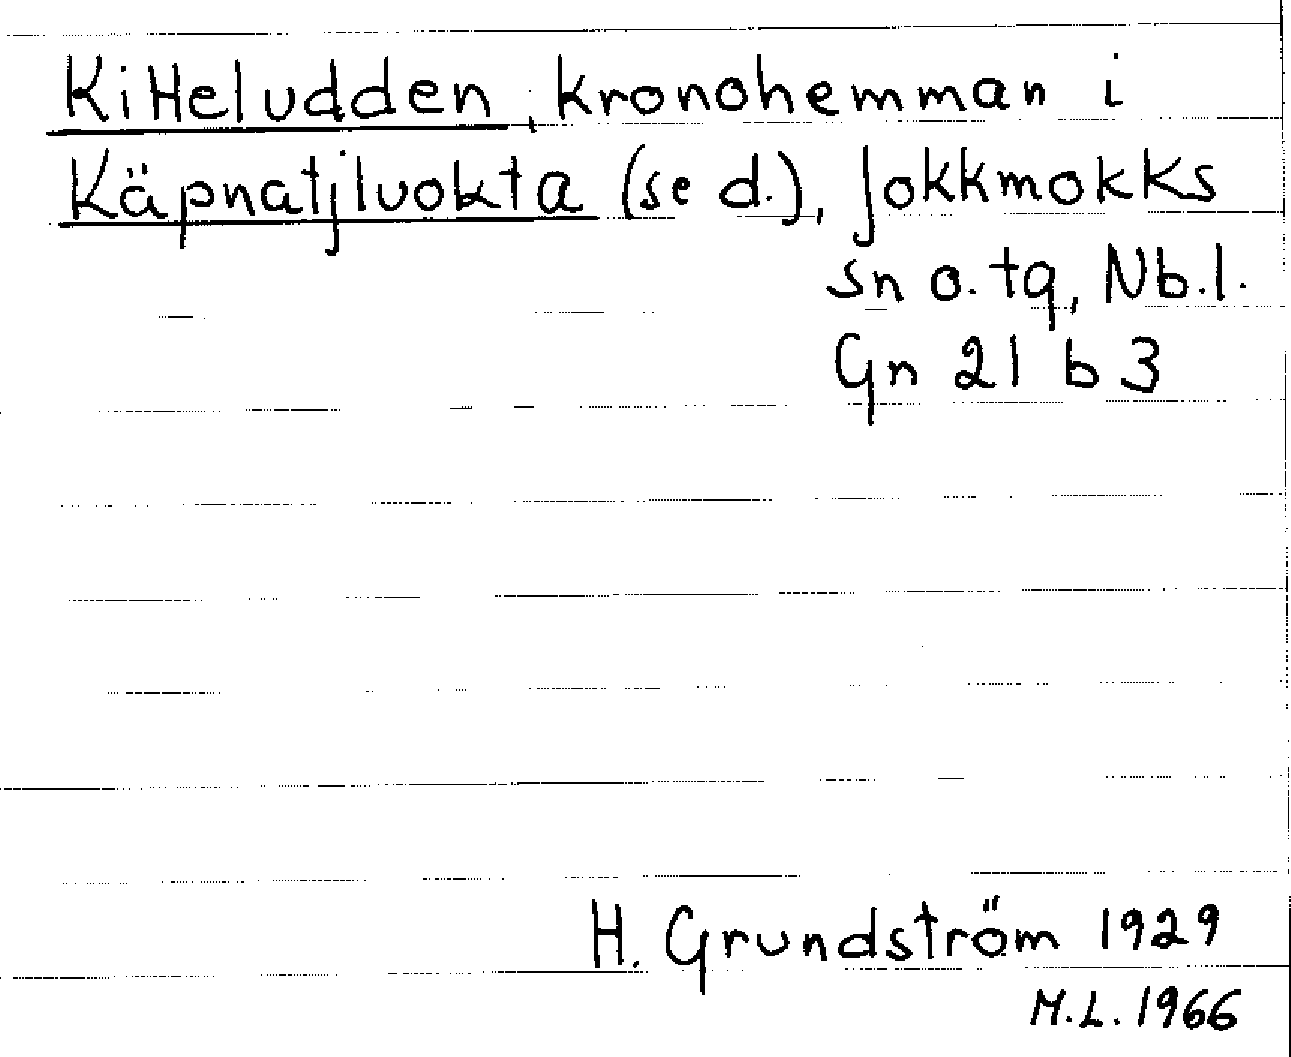 Kitteludden, kronohemman i
Käpnatjluokta (se d.), Jokkmokks
sn o. tg, Nb.l.
Gn 21 b 3
H. Grundström 1929
M.L. 1966